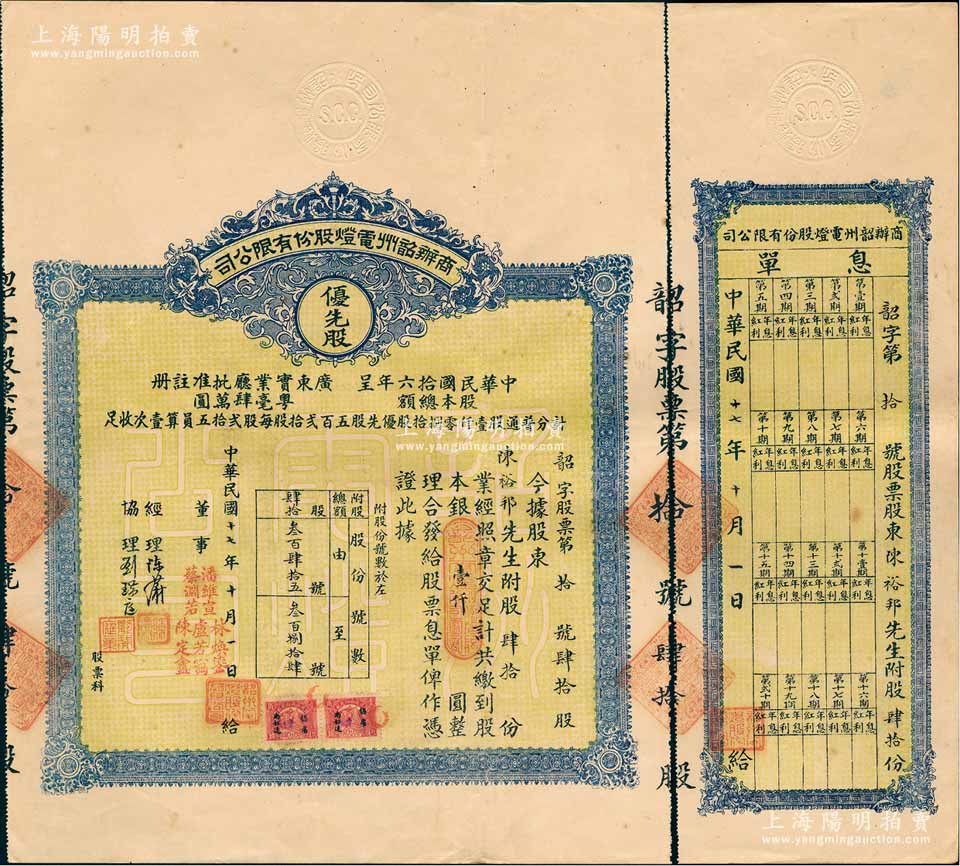 上海陽明拍賣
www.yangmingauction.com
上海陽明拍賣
www.yangmingauction.com
S.C.C.
S.C.C.
商辦韶州電燈股份有限公司
優先股
中華民國拾六年呈廣東實業廳批准註册
股本總額粵毫肆萬圓
計分普通股壹千零捌拾股優先股五百弍拾股每股弍拾五員算壹次收足
韶字股票第拾號肆拾股
今據股東
陳裕邦先生附股肆拾份
業經照章交足計共繳到股
本銀壹仟圓整
理合發給股票息單俾作憑
證此據
附股份號數於左
附股總額
股份號數
由號至號
肆拾股
叁百肆拾五
叁百捌拾肆
中華民國十七年十月一日給
董事
潘維宣
蔡淵若
盧芳
陳定
經理
協理
股票科
韶字股票第拾號肆拾股
韶字股票第拾號肆拾股
商辦韶州電燈股份有限公司
息單
韶字第拾號股票股東陳裕邦先生附股肆拾份
第壹期 年息 紅利
第弍期 年息 紅利
第三期 年息 紅利
第四期 年息 紅利
第五期 年息 紅利
第六期 年息 紅利
第七期 年息 紅利
第八期 年息 紅利
第九期 年息 紅利
第十期 年息 紅利
第十壹期 年息 紅利
第十弍期 年息 紅利
第十三期 年息 紅利
第十四期 年息 紅利
第十五期 年息 紅利
第十六期 年息 紅利
第十七期 年息 紅利
第十八期 年息 紅利
第十九期 年息 紅利
第弍十期 年息 紅利
中華民國十七年十月一日給
上海陽明拍賣
www.yangmingauction.com